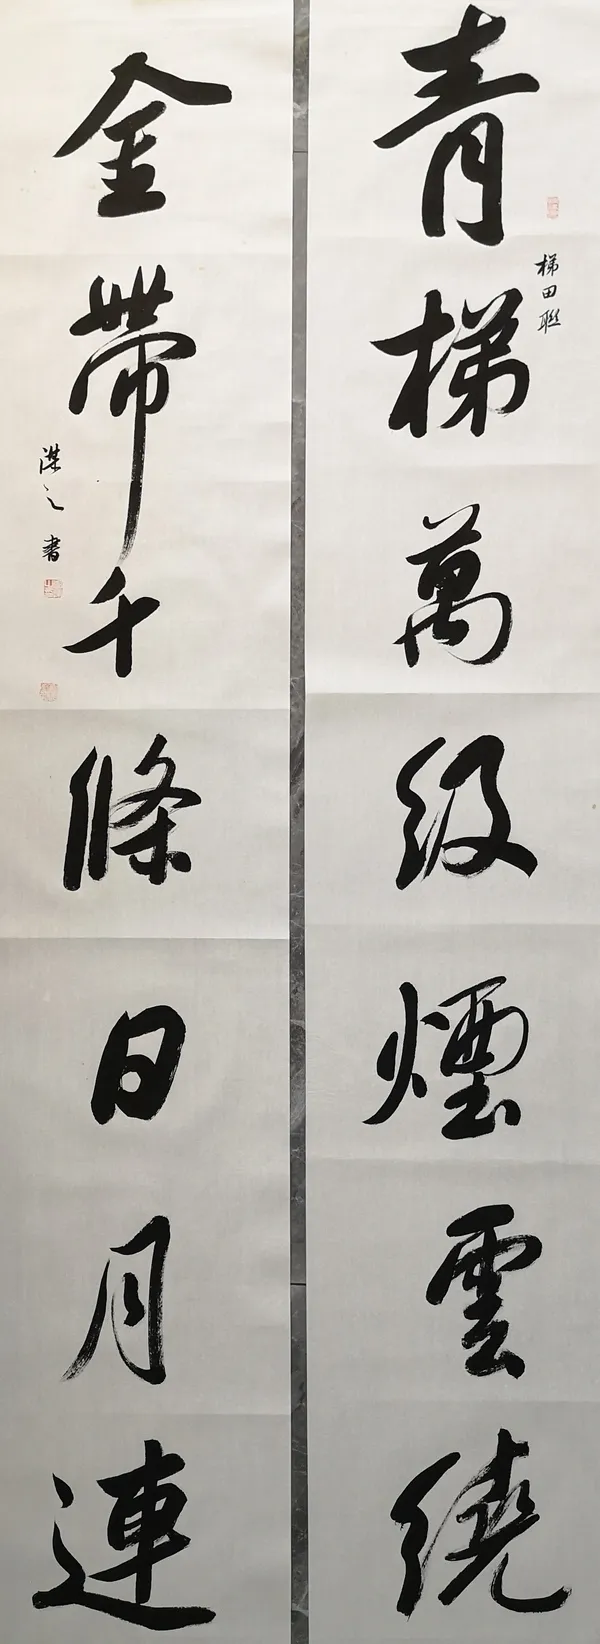 青梯萬級煙雲繞
梯田聯
金帶千條日月連
濮之書